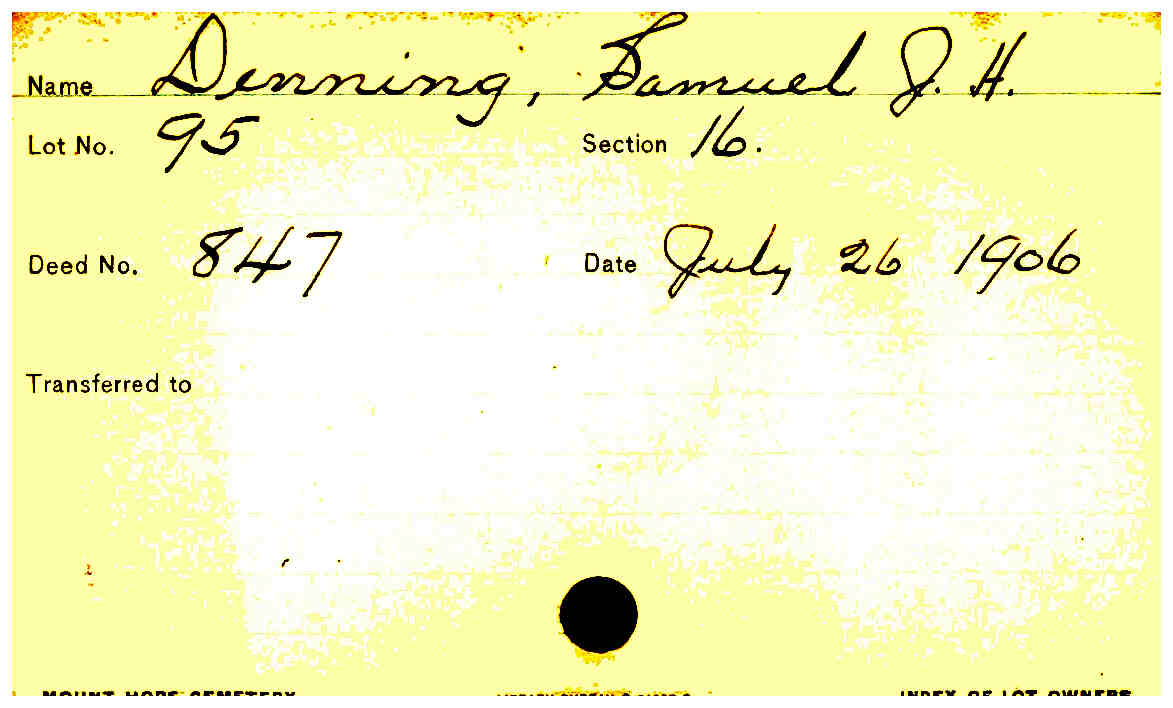 Name Denning, Samuel J. H.
Lot No. 95 Section 16.
Deed No. 847 Date July 26 1906
Transferred to
MOUNT HOPE CEMETERY INDEX OF LOT OWNERS